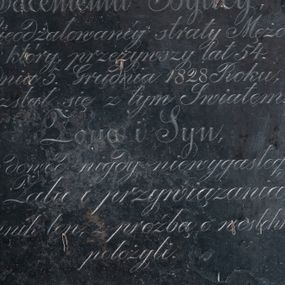 nieodżałowanéy straty Męża
który przeżywszy lat 54.
dnia 5 Grudnia 1828 Roku,
rozstał się z tym Światem
Żona i Syn,
dowód nigdy niewygasłeg
Żalu i przywiązania
mnik ten, z proźbą o westchn
położyli.